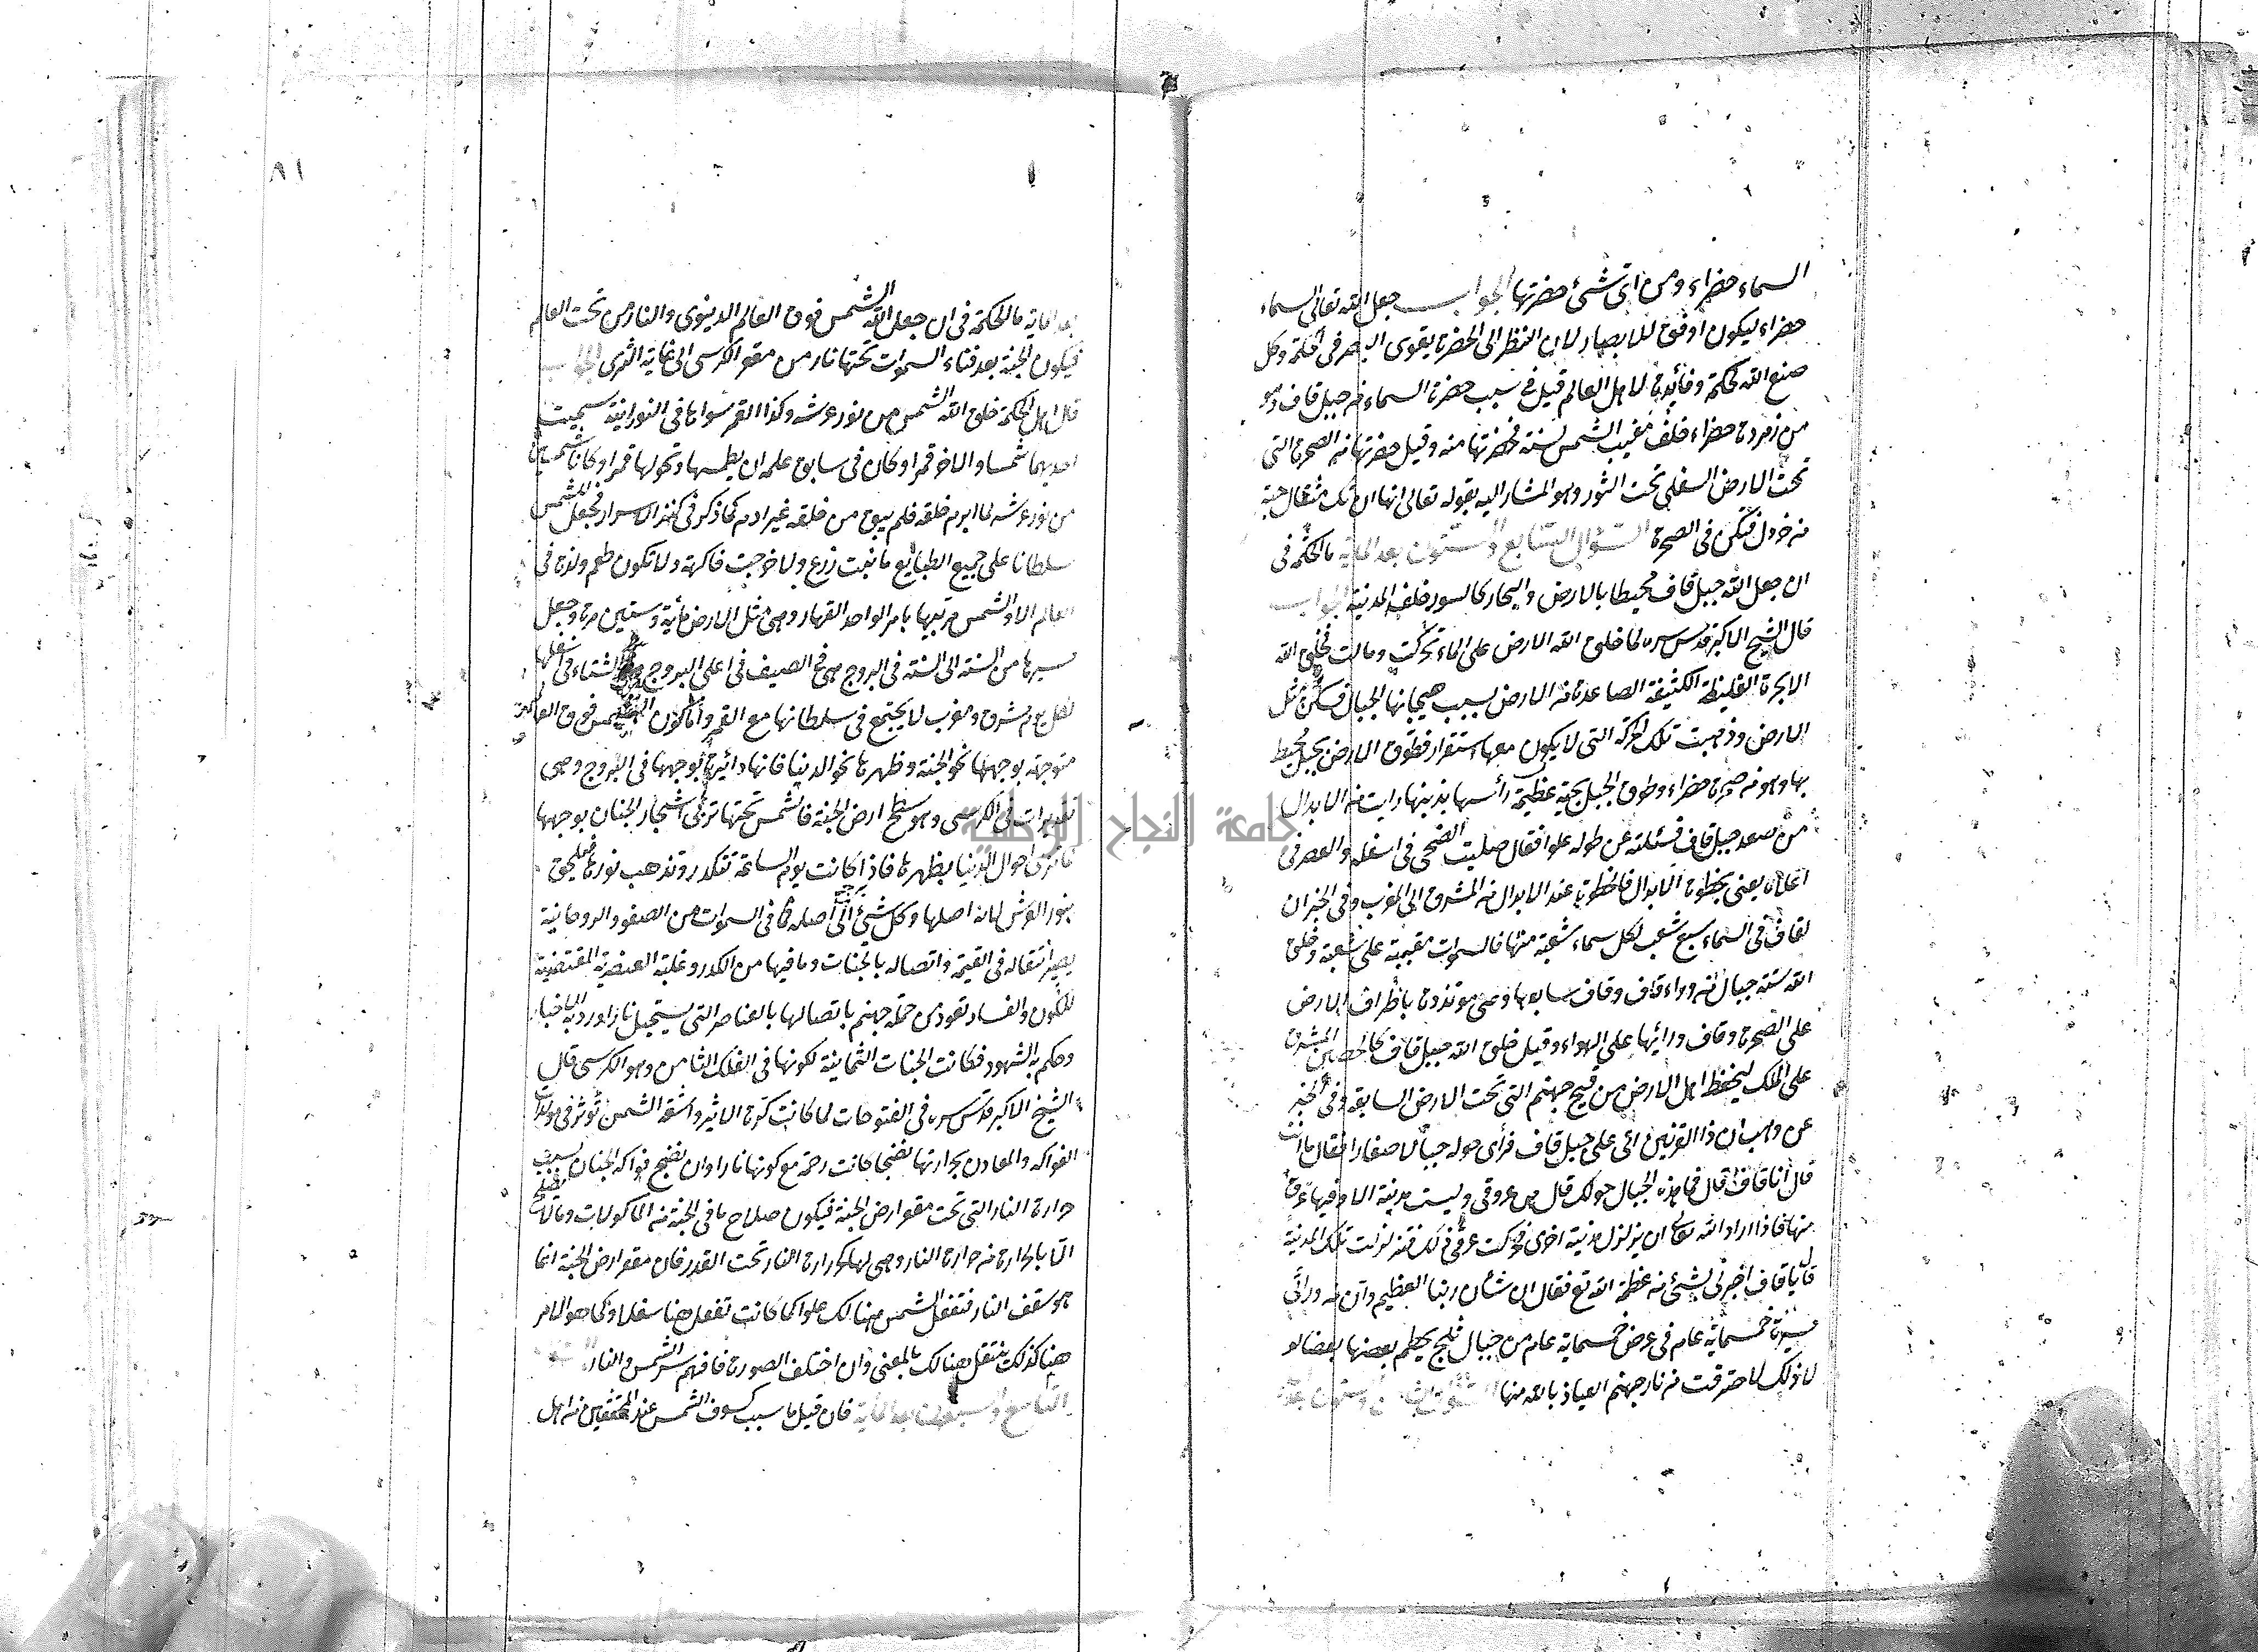 السماء خضراء ومن اى شئ خضرتها الجواب جعل الله تعالى السماء
خضراء ليكون اوفق للابصار لان النظر الى الخضرة يقوى البصر فى الحكمة وكل
صنع الله لحكمة وفائدة لاهل العالم قيل فى سبب خضرة السماء من جبل قاف وهو
من زمردة خضراء خلف مغيب الشمس بسنة فخضرتها منه وقيل خضرتها من الصخرة التى
تحت الارض السفلى تحت الثور وهو المشار اليه بقوله تعالى انها ان تك مثقال حبة
من خردل فتكن فى صخرة السؤال السابع والستون بعد الماية ما الحكمة فى
ان جعل الله جبل قاف محيطا بالارض والبحار كالسور خلف المدينة الجواب
قال الشيخ الاكبر قدس سره لما خلق الله الارض على الماء تحركت ومالت فخلق الله
الابخرة الغليظة الكثيفة الصاعدة من الارض بسبب هيجانها الجبال فسكن ثقل
الارض وذهبت تلك الحركة التى لا يكون معها استقرار فطوق الارض بجبل محيط
بها وهو من صخرة خضراء وطوق الجبل بحية عظيمة رأسها بذنبها رايت من الابدال
من صعد جبل قاف فسئلته عن طوله علوا فقال صليت الضحى فى اسفله والعصر فى
اعلاه يعنى بخطوة الابدال فالخطوة عند الابدال من المشرق الى المغرب وفى الخبر ان
لقاف فى السماء سبع شعب لكل سماء شعبة منها فالسموات مقببة على شعبة وخلق
الله ستة جبال من وراء قاف وقاف سابعها وهى موتدة باطراف الارض
على الصخرة وقاف ورائها على الهواء وقيل خلق الله جبل قاف كالحصن المشرف
على الملك ليحفظ اهل الارض من فيح جهنم التى تحت الارض السابعة وفى الخبر
عن وهب ان ذا القرنين اتى على جبل قاف فرأى حوله جبالا صغارا فقال ما انت
قال انا قاف قال فما هذه الجبال حولك قال هى عروقى وليست مدينة الا وفيها عرق
منها فاذا اراد الله تعالى ان يزلزل مدينة اخرى فحركت عرقى ذلك فتزلزلت تلك المدينة
قال يا قاف اخبرنى بشئ من عظمة الله تع فقال ان شأن ربنا العظيم وان من ورائى
مسيرة خمسماية عام فى عرض خمسماية عام من جبال ثلج يحطم بعضها بعضا لو
لا ذلك لاحترقت من نار جهنم العياذ بالله منها السؤال الثامن والستون بعد
٨١
بعد الماية ما الحكمة فى ان جعل الله الشمس فوق العالم الدنيوى والنار من تحت العالم
فيكون الجنة بعد فناء السموات تحتها نار من مقعر الكرسى الى غاية الثرى الجواب
قال اهل الحكمة خلق الله الشمس من نور عرشه وكذا القمر سواها فى النورانية سميت
احديهما شمسا والاخر قمرا وكان فى سابق علمه ان يطمسها وتحولها قمرا وكانا شمسين
من نور عرشه لما ابرم خلقه فلم يبق من خلقه غير ادم كما ذكر فى كنز الاسرار فجعل للشمس
سلطانا على جميع الطبايع ما نبت زرع ولا خرجت فاكهة ولا تكون طعم ولذة فى
العالم الا والشمس مربيها بامر الواحد القهار وهى مثل الارض مأية وستين مرة وجعل
سيرها من السنة الى السنة فى البروج هى فى الصيف فى اعلى البروج وفى الشتاء فى اسفلها
لكل يوم مشرق ومغرب لا يجتمع فى سلطانها مع القمر واما كون الشمس فوق العالم
متوجهة بوجهها نحو الجنة وظهرها نحو الدنيا فانها دائرة بوجهها فى البروج وهى
تقديرات فى الكرسى وهو سطح ارض الجنة فالشمس تحتها تربى اشجار الجنان بوجهها
كما تربى احوال الدنيا بظهرها فاذا كانت يوم الساعة تتكدر وتذهب نورها فيلحق
بنور العرش لانه اصلها وكل شئ يرجع الى اصله فما فى السموات من الصفو والروحانية
يصير انتقاله فى القيمة واتصاله بالجنات وما فيها من الكدر وغلبة العنصرية المقتضية
للكون والفساد تقود من حمله جهنم باتصالها بالعناصر التى يستحيل نارا ورد به الاخبار
وحكم به الشهود فكانت الجنات الثمانية لكونها فى الفلك الثامن وهو الكرسى قال
الشيخ الاكبر قدس سره فى الفتوحات لما كانت كرة الاثير واشعة الشمس تؤثر فى مولدات
الفواكه والمعادن بحرارتها نضجا كانت رحمة مع كونها نارا وان نضج فواكه الجنان بسبب
حرارة النار التى تحت مقعر ارض الجنة فيكون صلاح ما فى الجنة من الماكولات وما لا يصلح
الا بالحرارة من حرارة النار وهى لها كحرارة النار تحت القدر فان مقعر ارض الجنة انما
هو سقف النار فتفعل الشمس هنالك علوا كما كانت تفعل هنا سفلا وكما هو الامر
هنا كذلك ينتقل هنالك بالمعنى وان اختلف الصورة فافهم سر الشمس والنار السؤال
التاسع والستون بعد الماية فان قيل ما سبب كسوف الشمس عند المحققين من اهل
جامعة النجاح الوطنية